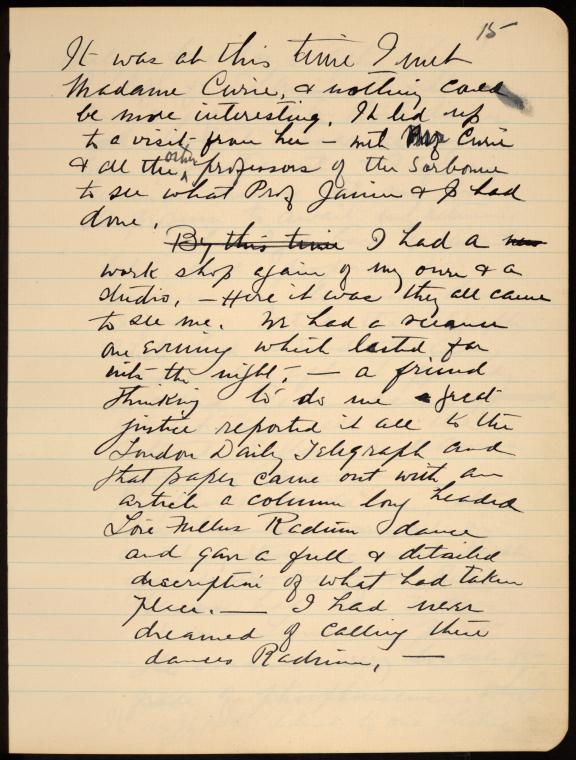 15
It was at this time I met
Madame Curie, & nothing could
be more interesting. It led up
to a visit from her – with Curie
& all the other professors of the Sorbonne
to see what Prof Janin & I had
done.
By this time I had a new
work shop again of my own & a
studio. – Here it was they all came
to see me. We had a seance
one evening which lasted far
into the night. – a friend
thinking to do me great
justice reported it all to the
London Daily Telegraph and
that paper came out with an
article a column long headed
Loie Fullers Radium dance
and gave a full & detailed
description of what had taken
place. — I had never
dreamed of calling these
dances Radium, —